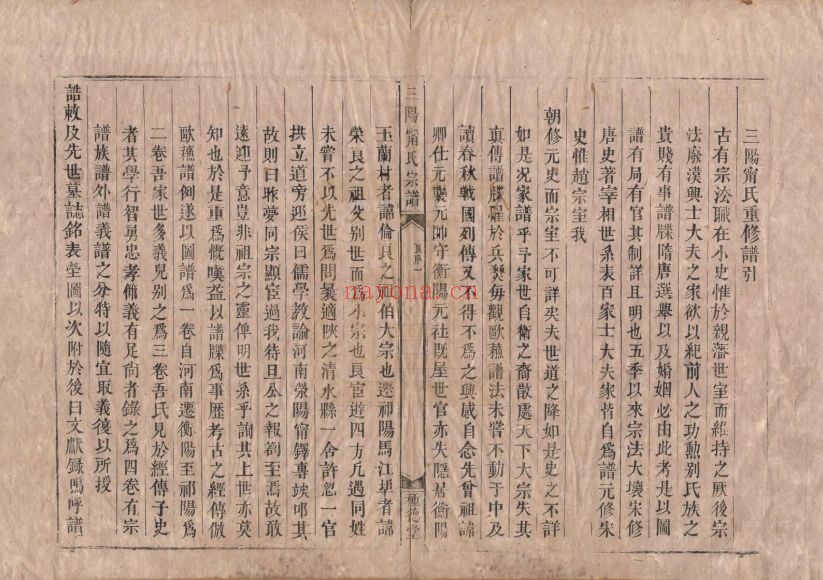 三陽甯氏重修譜引
古有宗法職在小史惟於親藩世室而維持之厥後宗
法廢漢興士大夫之家欲以紀前人之功勲别氏族之
貴賤有事譜牒隋唐選舉以及婚姻必由此考是以圖
譜有局有官其制詳且明也五季以來宗法大壞宋修
唐史著宰相世系表百家士大夫家皆自爲譜元修宋
史惟趙宗室我
朝修元史而宗室不可詳矣夫世道之降如是史之不詳
如是况家譜乎予家世自衛之裔散處天下大宗失其
真傳譜牒罹於兵燹每觀歐蘇譜法未嘗不動于中及
讀春秋戰國列傳又不得不爲之興感自念先曾祖諱
卿仕元襄元帥守衡陽元社既屋世官亦失隱居衡陽
三陽甯氏宗譜
種德堂
玉蘭村者諱倫良之祖伯大宗也遷祁陽馬江埠者諱
榮良之祖父别世而爲小宗也良宦遊四方凡遇同姓
未嘗不以先世爲問曩適陜之清水縣一舍許忽一官
拱立道旁迎侯曰儒學教諭河南滎陽甯鐸專竢叩其
故則曰昨夢同宗顯宦過我待旦公之報劄至焉故敢
遠迎予意豈非祖宗之靈俾明世系乎詢其上世亦莫
知也於是重爲慨嘆益以譜牒爲事歷考古之經傳倣
歐蘇譜例遂以圖譜爲一卷自河南遷衡陽至祁陽爲
二卷吾家世多義兒别之爲三卷吾氏見於經傳子史
者其學行智勇忠孝節義有足尚者錄之爲四卷有宗
譜族譜外譜義譜之分特以隨宜取義後以所授
誥敕及先世墓誌銘表塋圖以次附於後曰文獻録嗚呼譜
nayona.cn